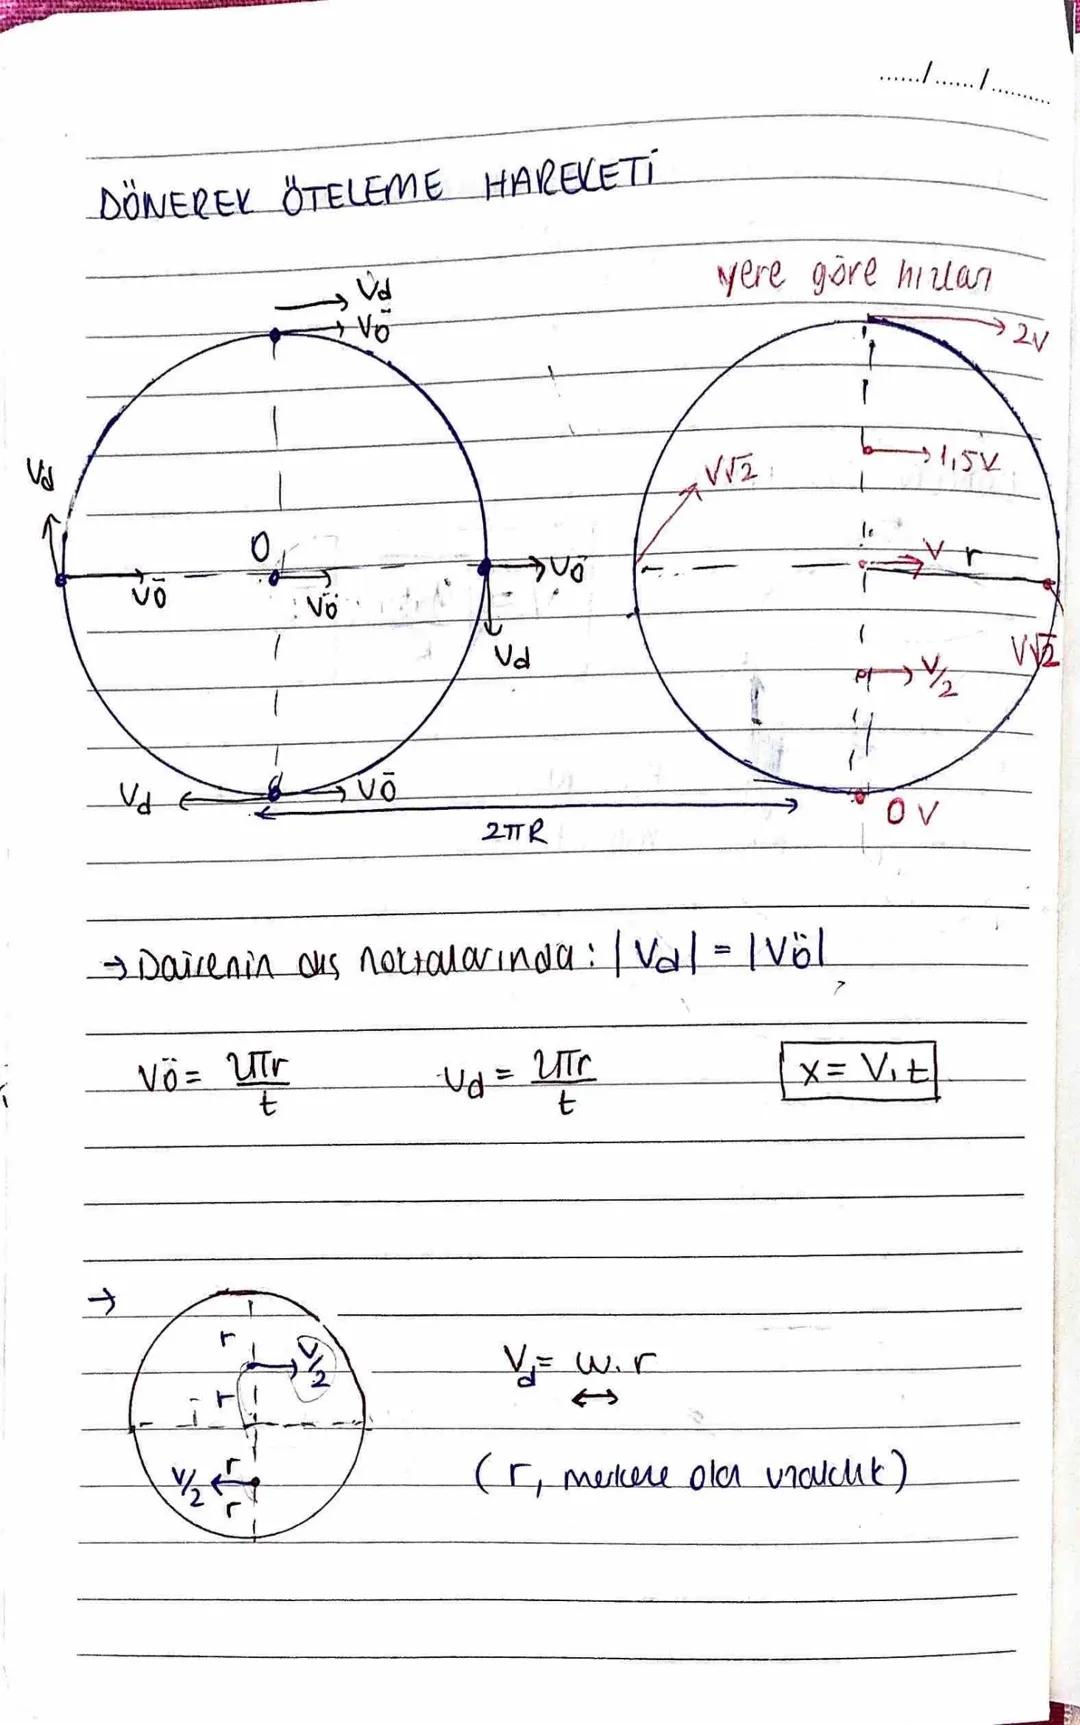 ....../....../..........
DÖNEREK ÖTELEME HAREKETİ
yere göre hızları
Vd
Vö
2V
Vd
1,5V
V√2
O
V r
Vö
Vö
Vö
Vd
V√2
V/2
Vd
Vö
0V
2πR
→ Dairenin dış noktalarında: |Vd| = |Vö|
Vö = 2πr/t Vd = 2πr/t x = V.t
→
r
V/2
r
Vd = w.r
↔
V/2
r
r
(r, merkeze olan uzaklık)